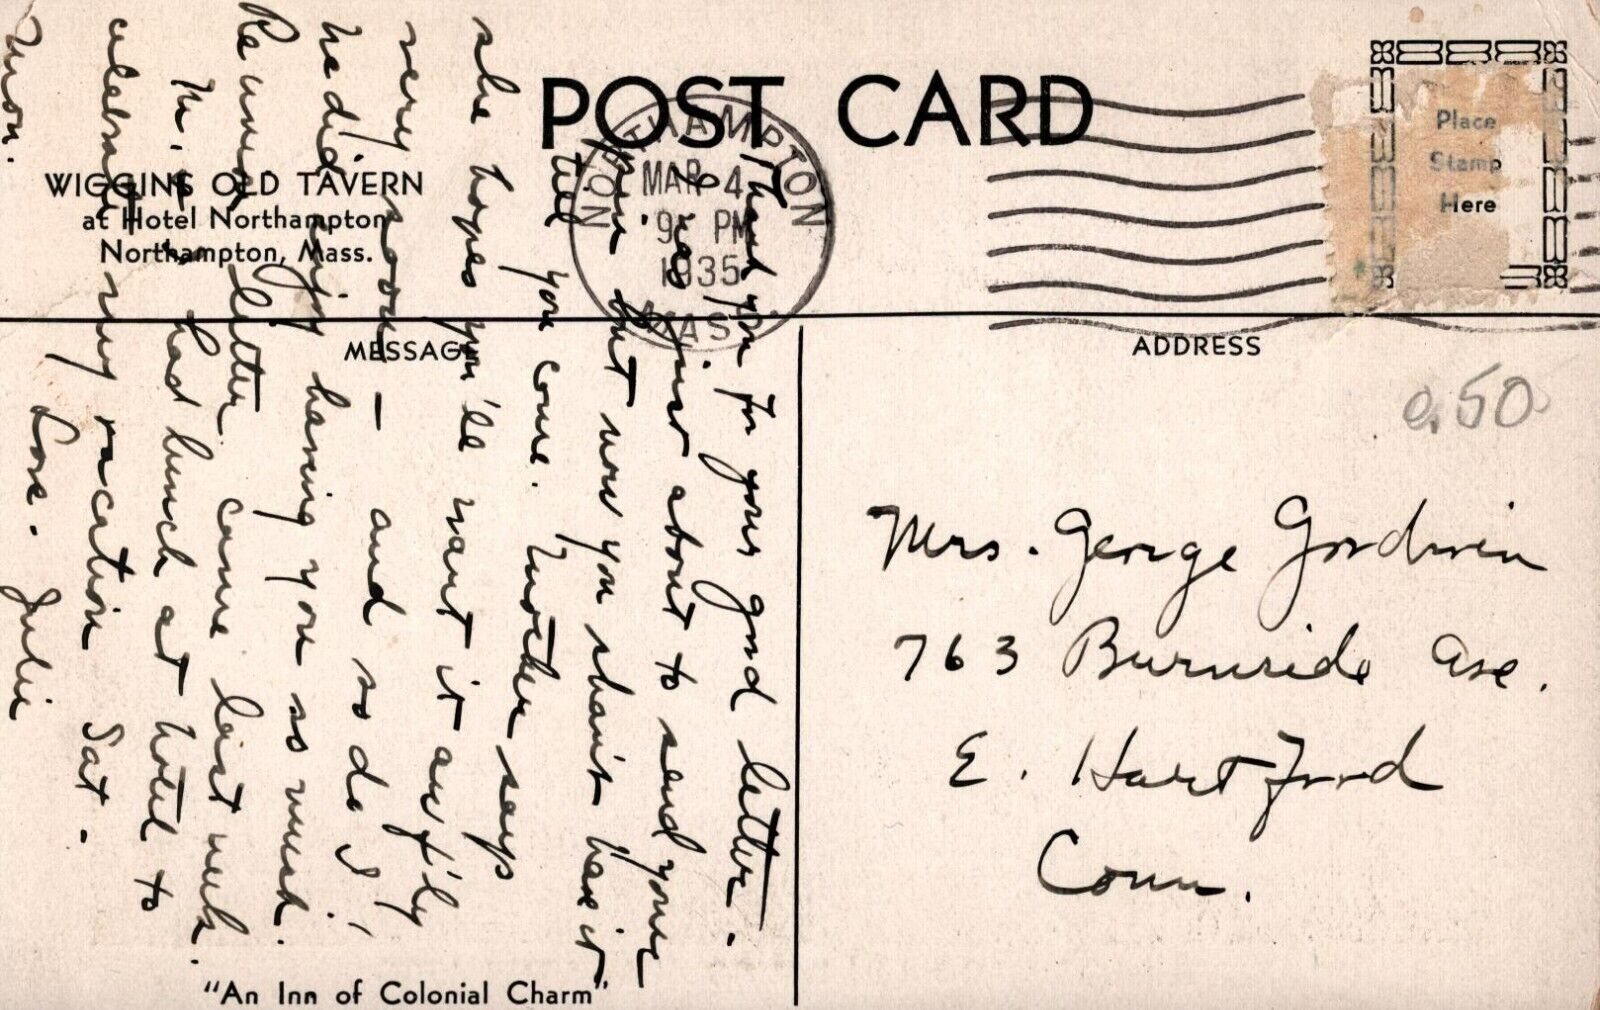 POST CARD
WIGGINS OLD TAVERN
at Hotel Northampton
Northampton, Mass.
NORTHAMPTON
MAR 4
9 PM
1935
MASS
Place
Stamp
Here
MESSAGE
ADDRESS
0.50
Mrs. George Goodwin
763 Burnside Ave.
E. Hartford
Conn.
Thank you for your good letter.
I was just about to send your
but now you shan't have it
till you come. Mother says
she hopes you'll want it awf'ly
very soon - and so do I,
We did enjoy having you so much.
letter came last week.
had lunch at hotel to
celebrate my vacation Sat.
Mon. Love. Julie
"An Inn of Colonial Charm"